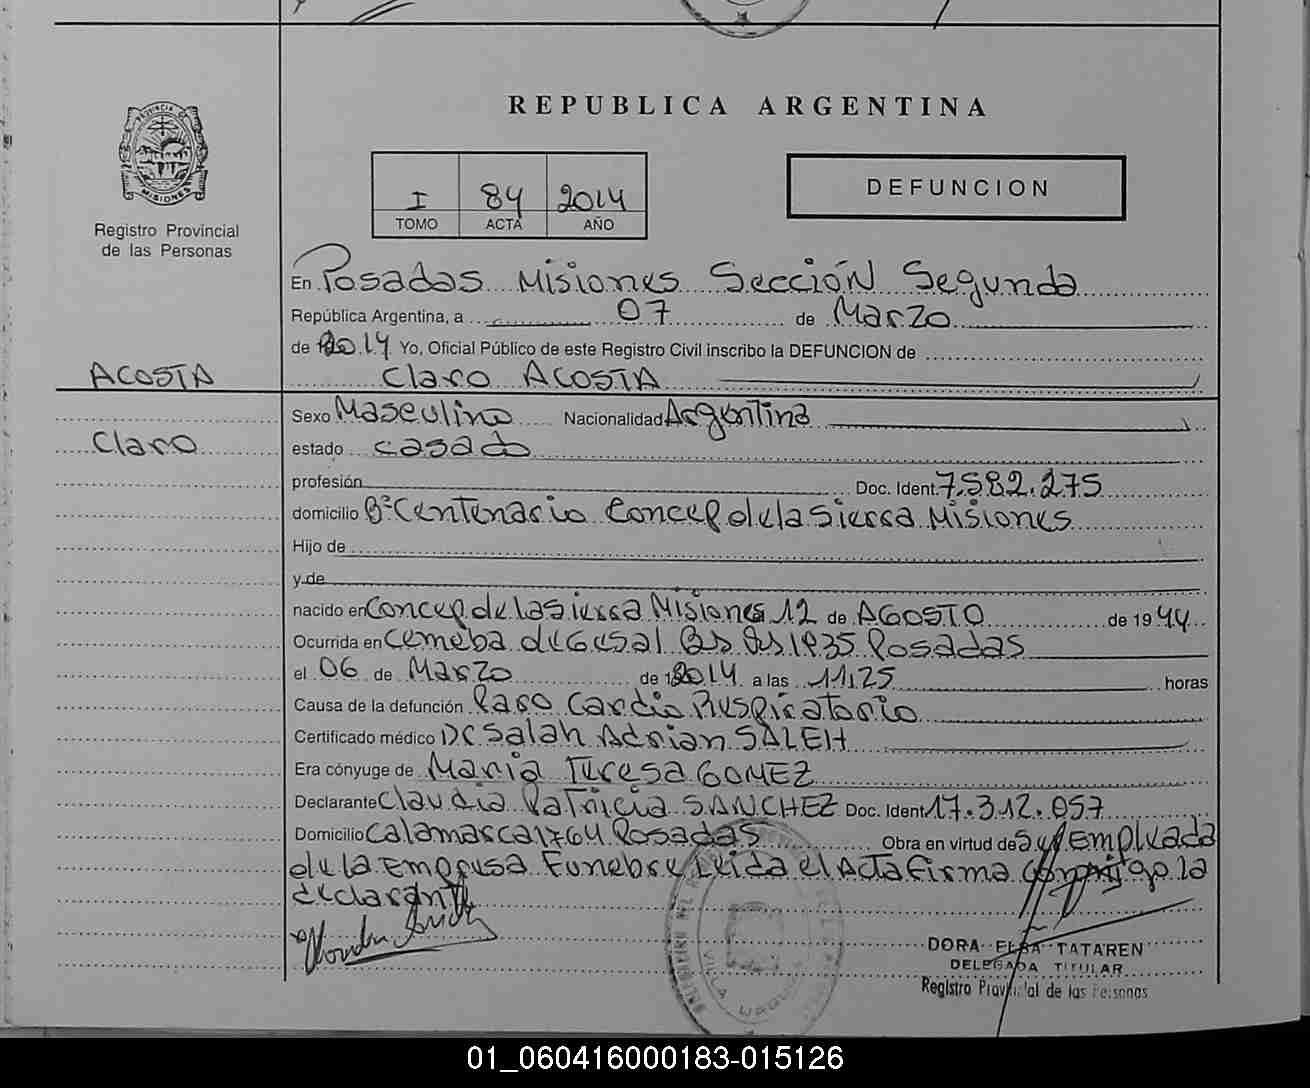 REPUBLICA ARGENTINA
PROVINCIA DE
MISIONES
Registro Provincial
de las Personas
I 84 2014
TOMO ACTA AÑO
DEFUNCION
En Posadas Misiones Sección Segunda
República Argentina, a 07 de Marzo
de 2014 Yo, Oficial Público de este Registro Civil inscribo la DEFUNCION de
ACOSTA
Claro ACOSTA
Sexo Masculino Nacionalidad Argentina
Claro
estado casado
profesión Doc. Ident. 7.582.275
domicilio Bº Centenario Concep de la Sierra Misiones
Hijo de
y de
nacido en Concep de la Sierra Misiones 12 de AGOSTO de 1944
Ocurrida en Cemeba de Gesal Bs As 1935 Posadas
el 06 de Marzo de 2014 a las 11,25 horas
Causa de la defunción Paro Cardio Respiratorio
Certificado médico Dr Salah Adrian SALEH
Era cónyuge de Maria Teresa GOMEZ
Declarante Claudia Patricia SANCHEZ Doc. Ident 17.312.057
Domicilio Catamarca 1764 Posadas Obra en virtud de Ser Empleada
de la Empresa Funebre Leida el Acta firma conmigo la
declarante
DORA ELBA TATAREN
DELEGADA TITULAR
Registro Provincial de las Personas
VILLA URQUIZA
01_060416000183-015126